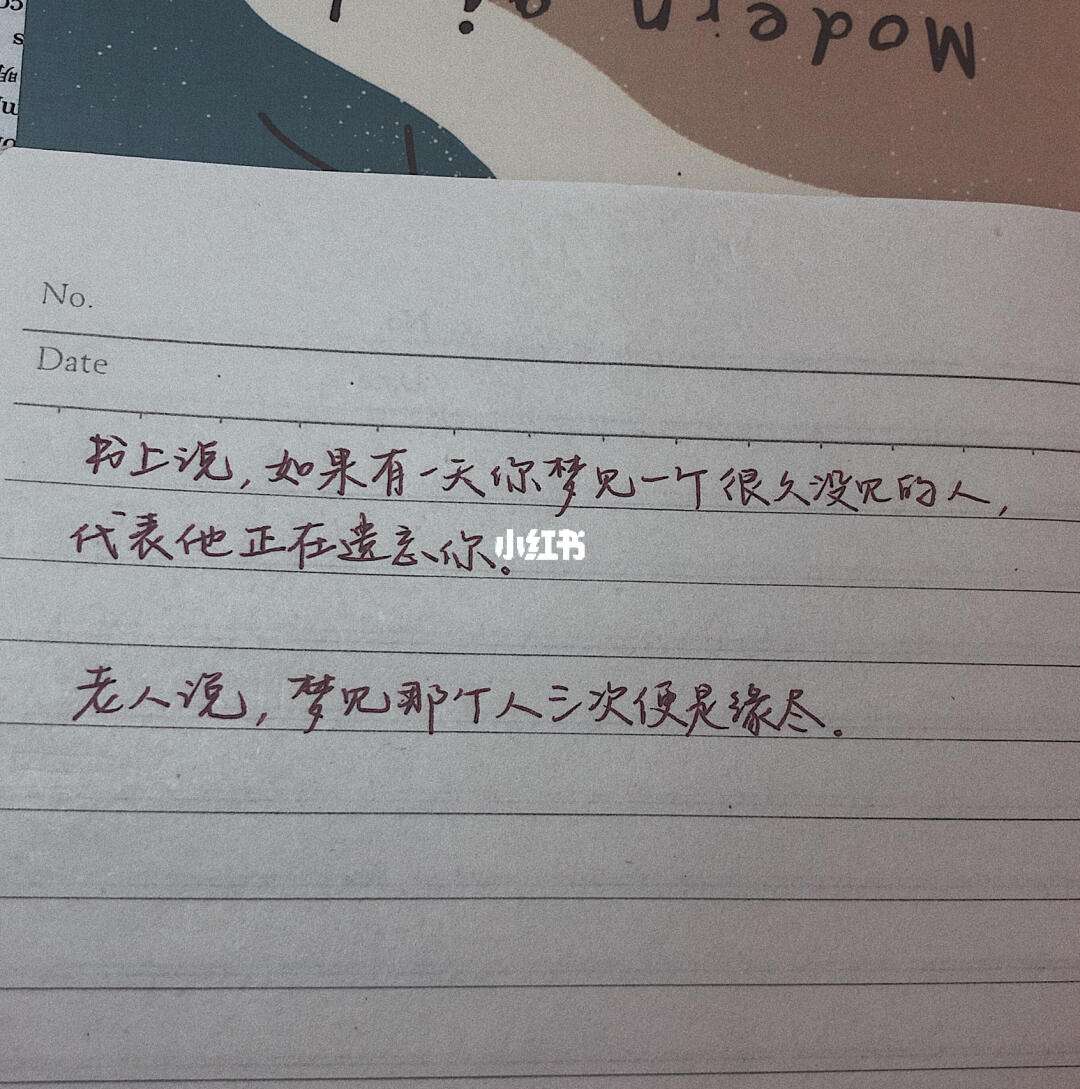 Modern
No.
Date
书上说,如果有一天你梦见一个很久没见的人,
代表他正在遗忘你.
小红书
老人说,梦见那个人三次便是缘尽.